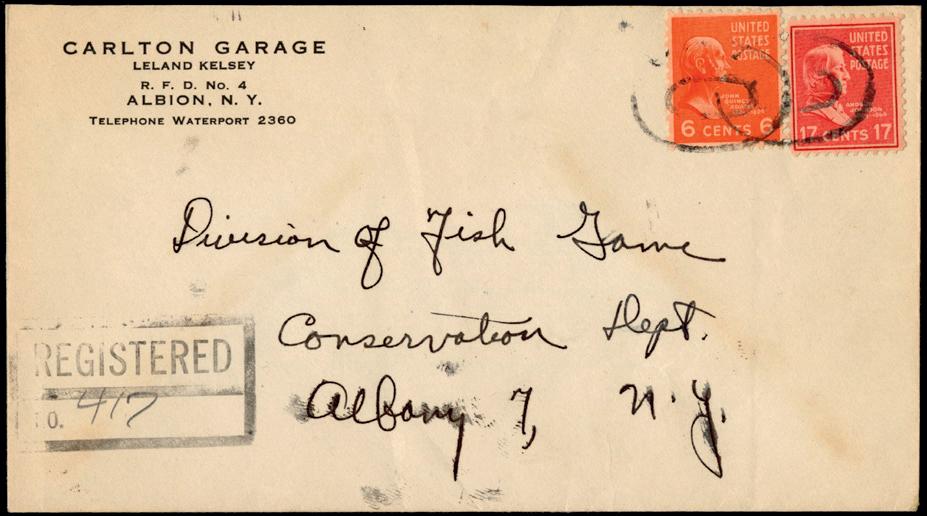 CARLTON GARAGE
LELAND KELSEY
R. F. D. No. 4
ALBION, N. Y.
TELEPHONE WATERPORT 2360
UNITED
STATES
POSTAGE
JOHN
QUINCY
ADAMS
6 CENTS 6
UNITED
STATES
POSTAGE
ANDREW
JOHNSON
17 CENTS 17
Division of Fish Game
Conservation Dept.
Albany 7, N.Y.
REGISTERED
O. 417